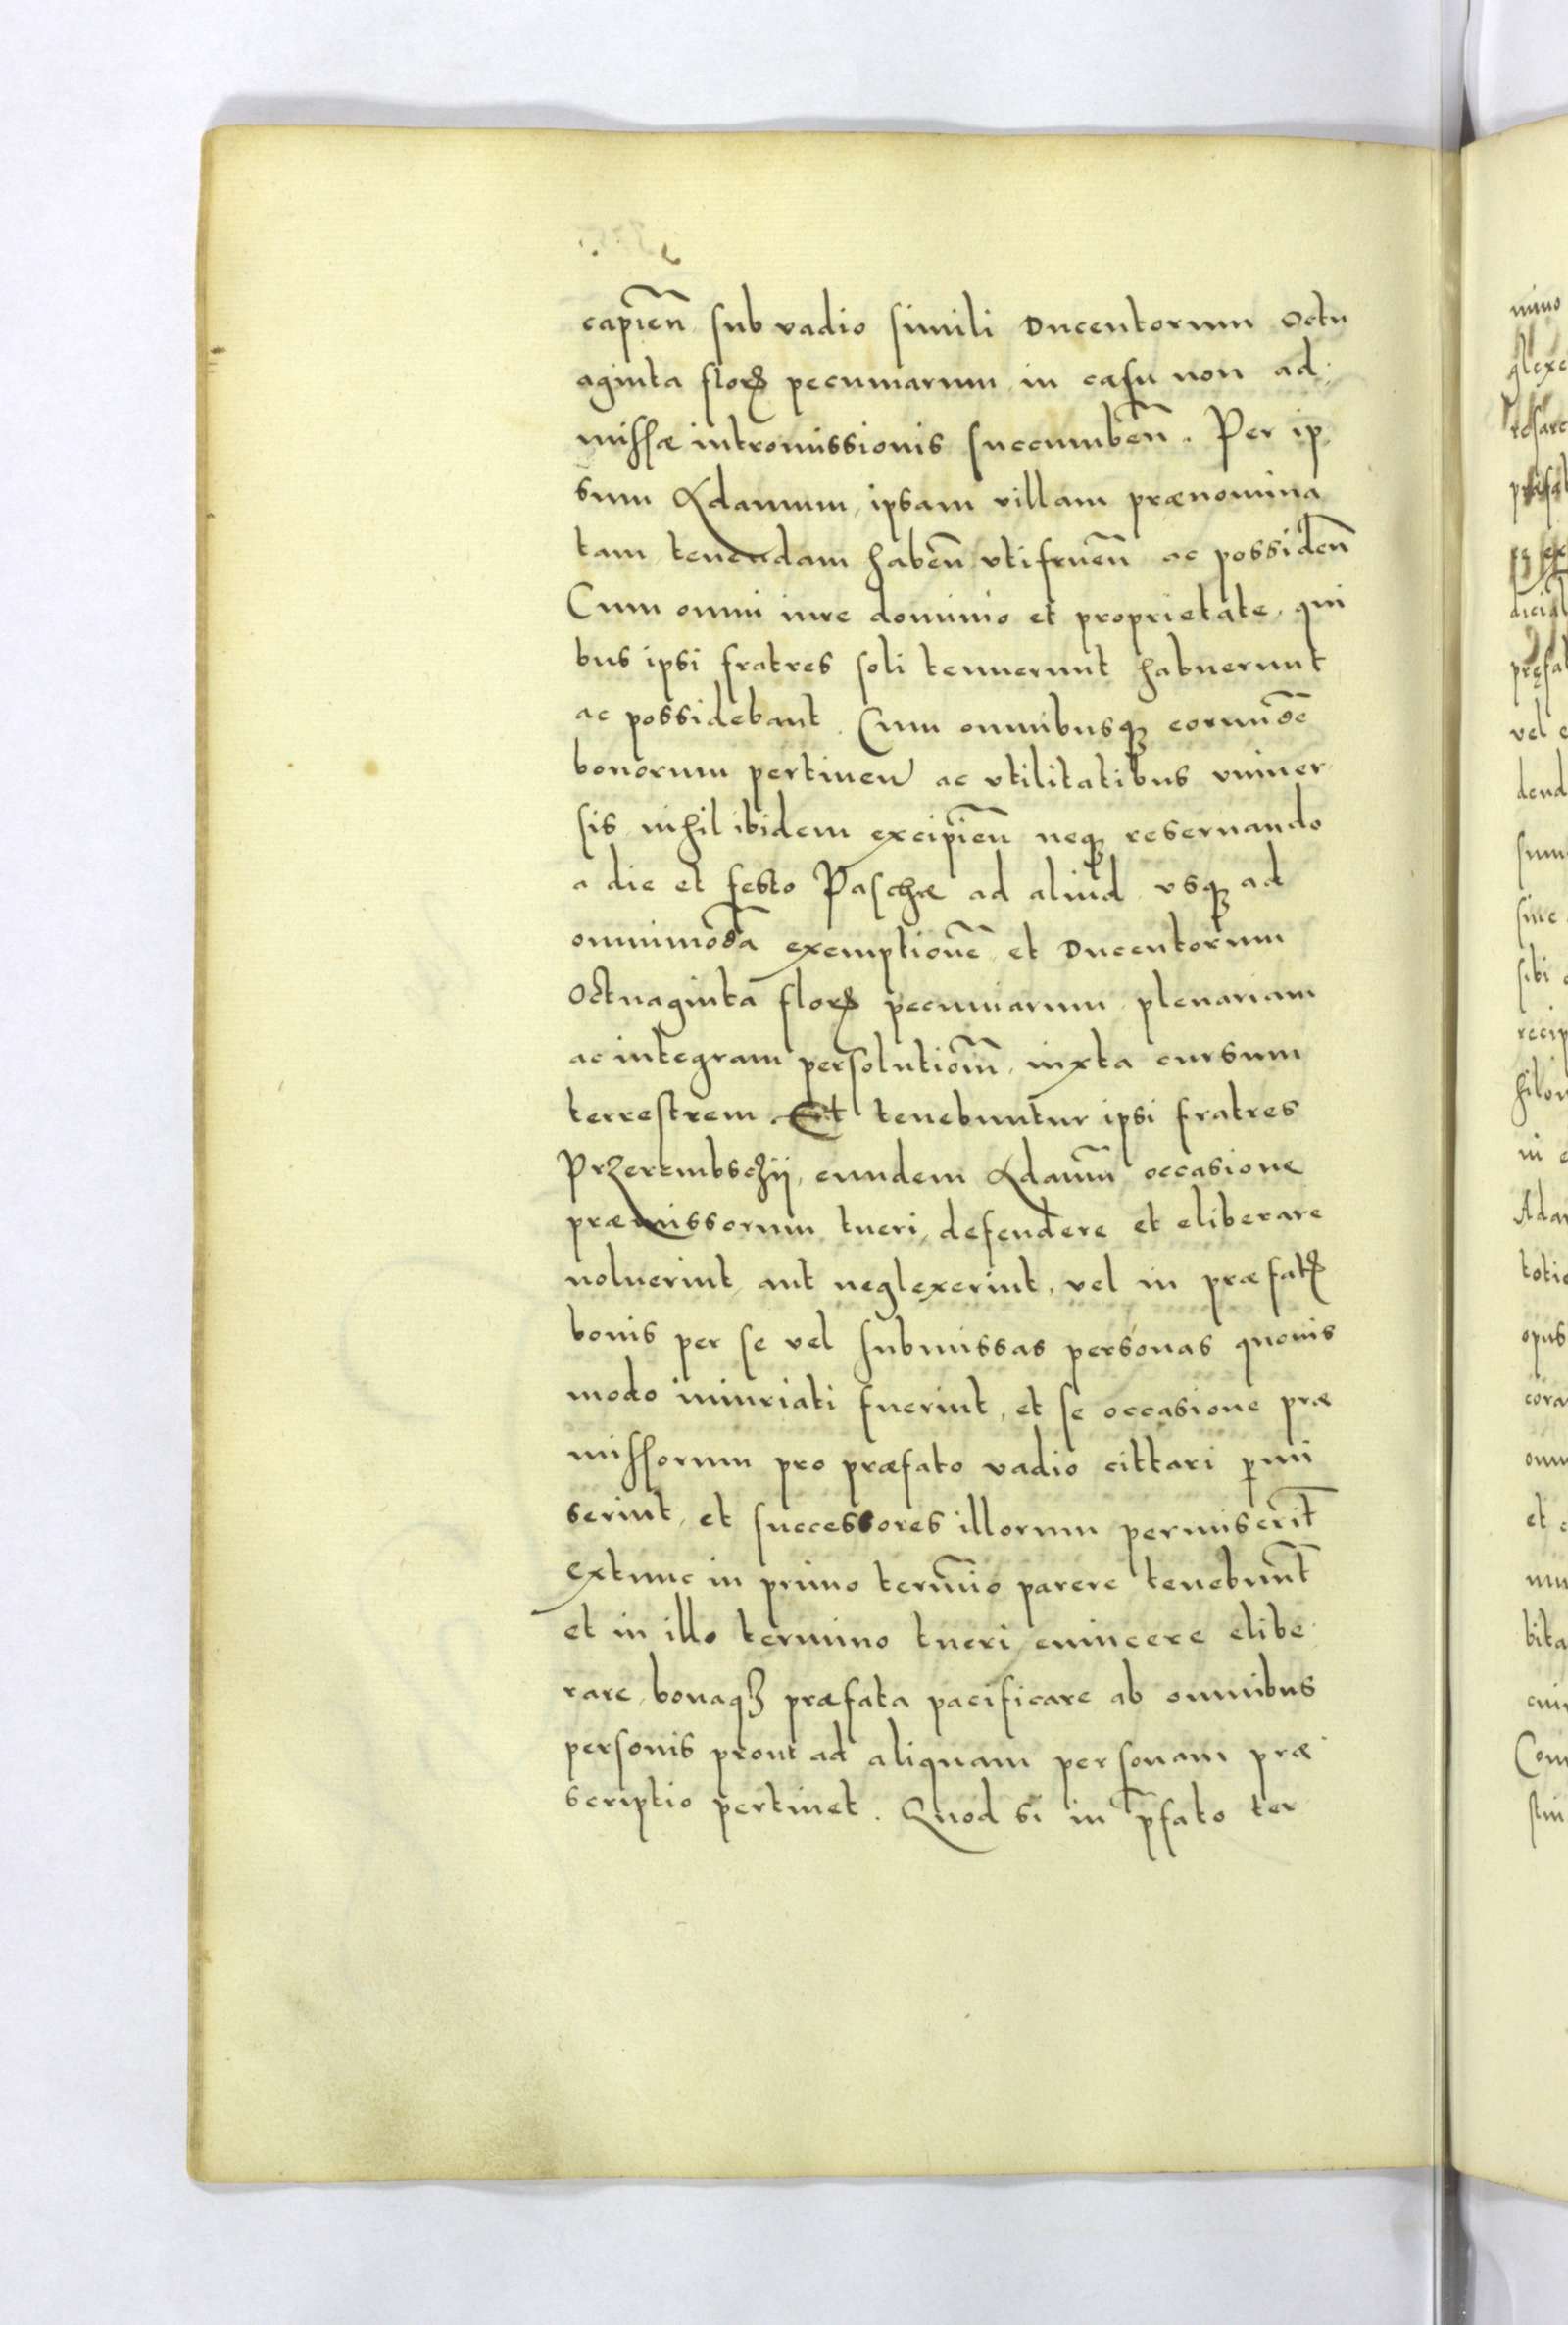 capien̄ sub vadio simili Ducentorum Octu
aginta floꝝ pecuniarum in casu non ad
missæ intromissionis succumben̄. Per ip
sum Adamum, ipsam villam prænomina
tam tenendam haben̄ vtifruen̄ ac possiden̄
Cum omni iure dominio et proprietate, qui
bus ipsi fratres soli tenuerunt habuerunt
ac possidebant. Cum omnibusqꝫ eorundē
bonorum pertinen̄ ac vtilitatibus vniuer
sis nihil ibidem excipien̄ neqꝫ reseruando
a die et festo Paschæ ad aliud vsqꝫ ad
omnimodā exemptionē et Ducentorum
Octuaginta floꝝ pecuniarum plenariam
ac integram persolutiōm, iuxta cursum
terrestrem. Et tenebuntur ipsi fratres
Przerembschÿ, eundem Adamū occasione
præmissorum tueri, defendere et eliberare
noluerint aut neglexerint, vel in præfatꝭ
bonis per se vel submissas personas quouis
modo iniuriati fuerint, et se occasione præ
missorum pro præfato vadio cittari ꝑmi
serint, et successores illorum permiserīt
extunc in primo term̄io parere tenebūnt
et in illo termino tueri euincere elibe
rare, bonaqꝫ præfata pacificare ab omnibus
personis prout ad aliquam personam præ
scriptio pertinet. Quod si in p̄fato ter